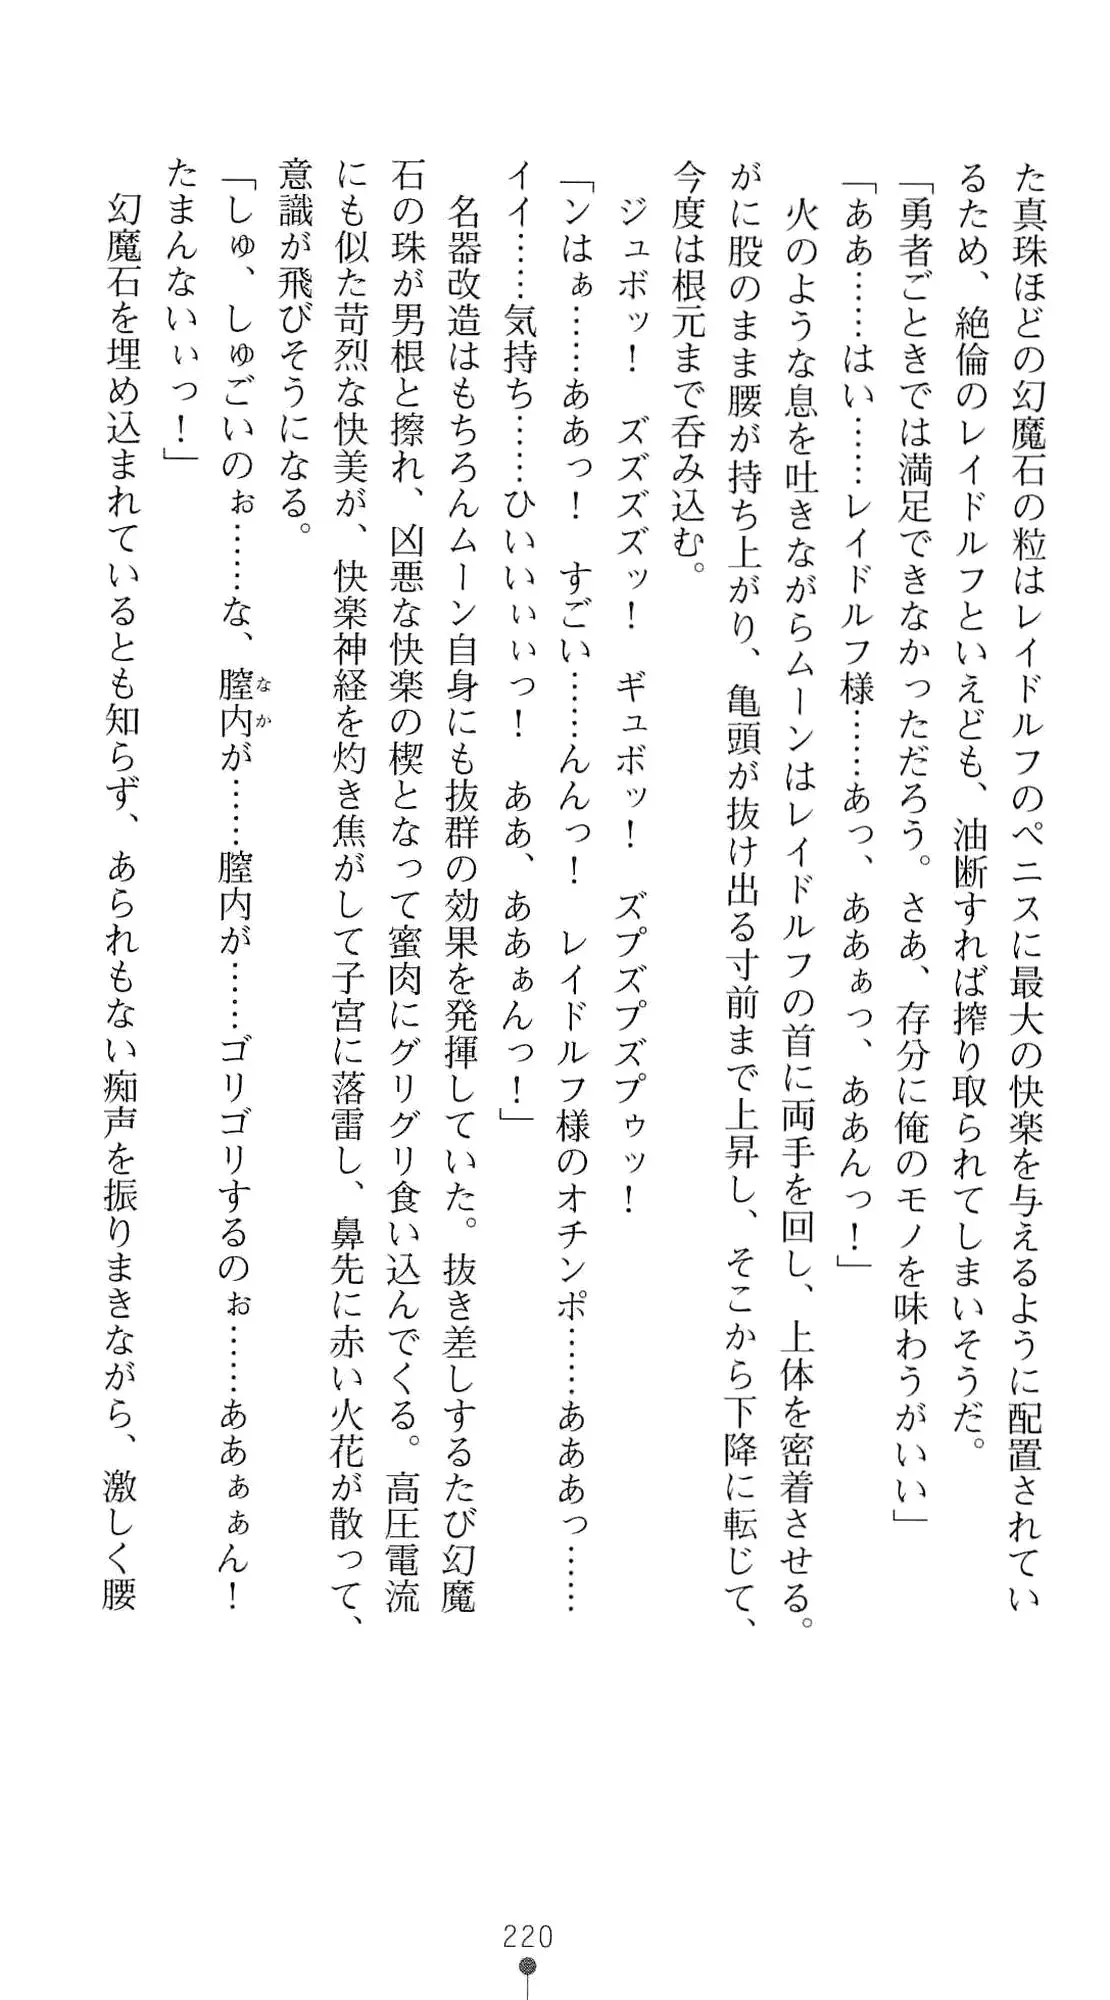 た真珠ほどの幻魔石の粒はレイドルフのペニスに最大の快楽を与えるように配置されてい
るため、絶倫のレイドルフといえども、油断すれば搾り取られてしまいそうだ。
「勇者ごときでは満足できなかっただろう。さあ、存分に俺のモノを味わうがいい」
「ああ……はい……レイドルフ様……あっ、ああぁっ、ああんっ！」
火のような息を吐きながらムーンはレイドルフの首に両手を回し、上体を密着させる。
がに股のまま腰が持ち上がり、亀頭が抜け出る寸前まで上昇し、そこから下降に転じて、
今度は根元まで呑み込む。
ジュボッ！　ズズズズッ！　ギュボッ！　ズプズプズプゥッ！
「ンはぁ……ああっ！　すごい……んんっ！　レイドルフ様のオチンポ……あああっ……
イイ……気持ち……ひいいぃぃっ！　ああ、ああぁんっ！」
名器改造はもちろんムーン自身にも抜群の効果を発揮していた。抜き差しするたび幻魔
石の珠が男根と擦れ、凶悪な快楽の楔となって蜜肉にグリグリ食い込んでくる。高圧電流
にも似た苛烈な快美が、快楽神経を灼き焦がして子宮に落雷し、鼻先に赤い火花が散って、
意識が飛びそうになる。
「しゅ、しゅごいのぉ……な、膣内なかが……膣内が……ゴリゴリするのぉ……ああぁぁん！
たまんないぃっ！」
幻魔石を埋め込まれているとも知らず、あられもない痴声を振りまきながら、激しく腰
220